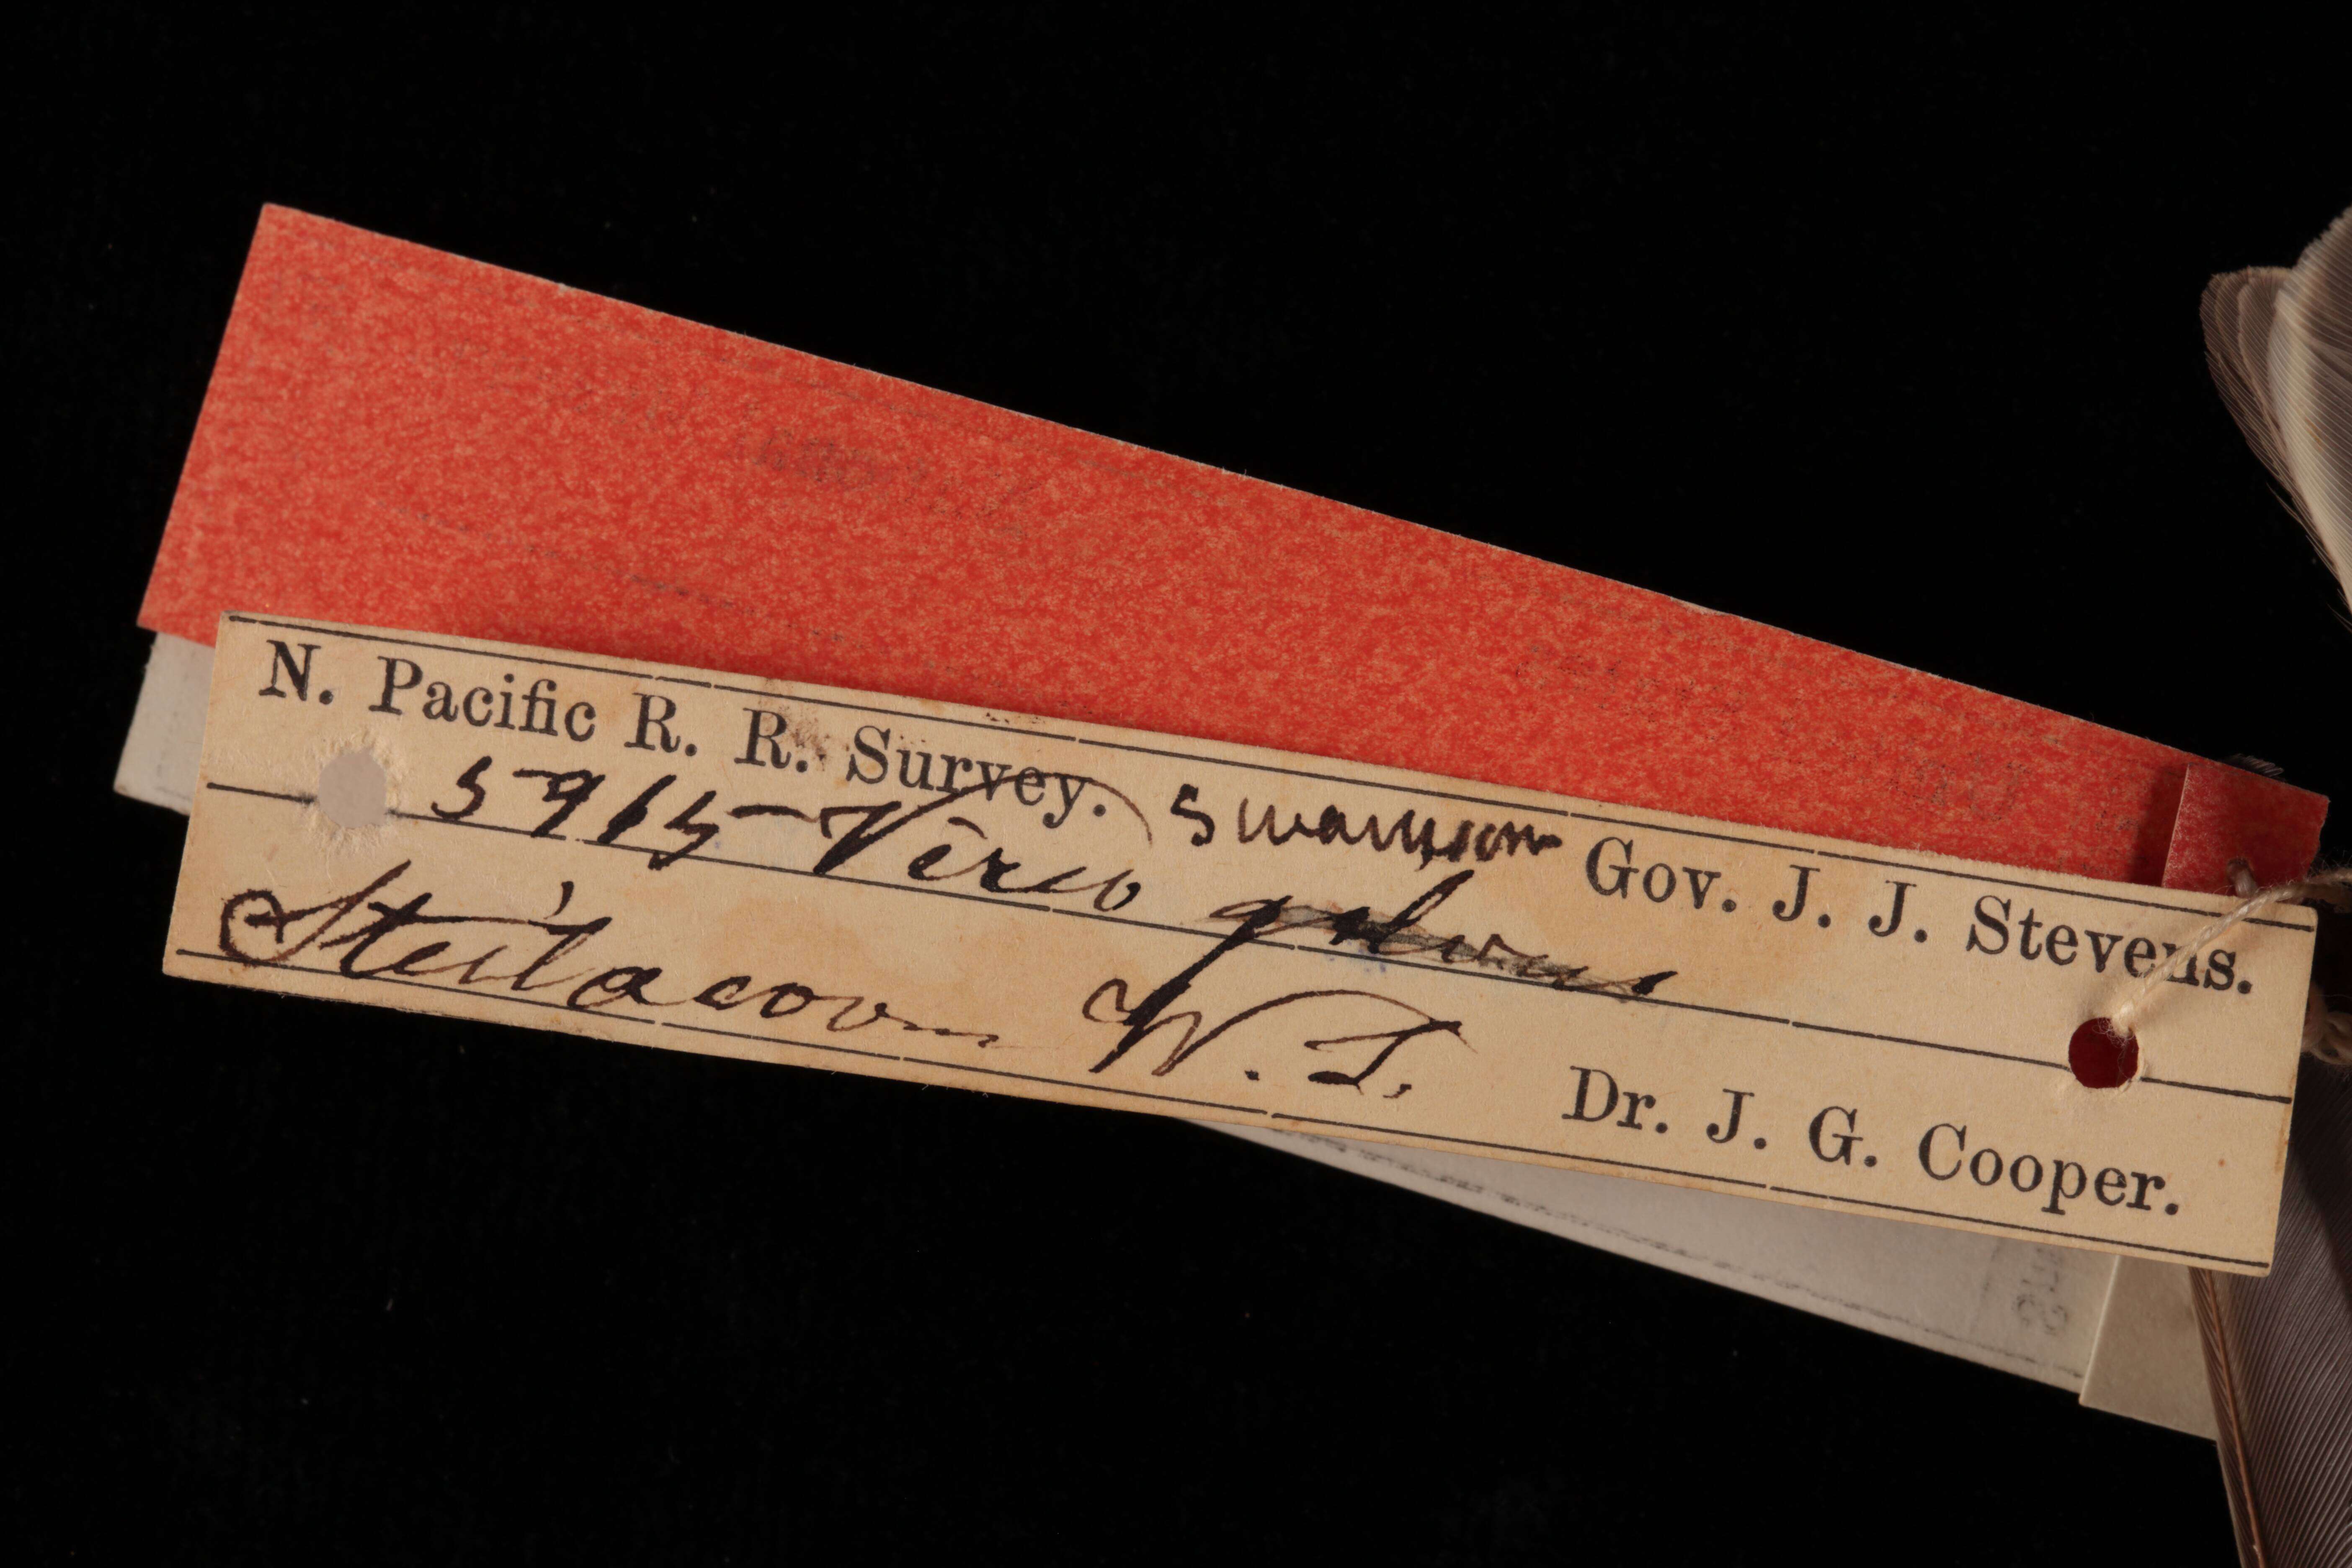 N. Pacific R. R. Survey. Gov. J. J. Stevens.
5915 Vireo swainsoni
Steilacoom W. T. Dr. J. G. Cooper.